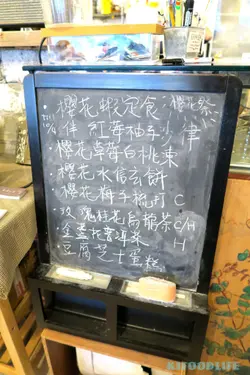 櫻花祭
·櫻花蝦定食
伴 紅莓柚子沙律
·櫻花草莓白桃凍
·櫻花水信玄餅
·櫻花梅子梳打 C
玫瑰桂花烏龍茶 C/H
H
豆腐芝士蛋糕
KIFOODLIFE